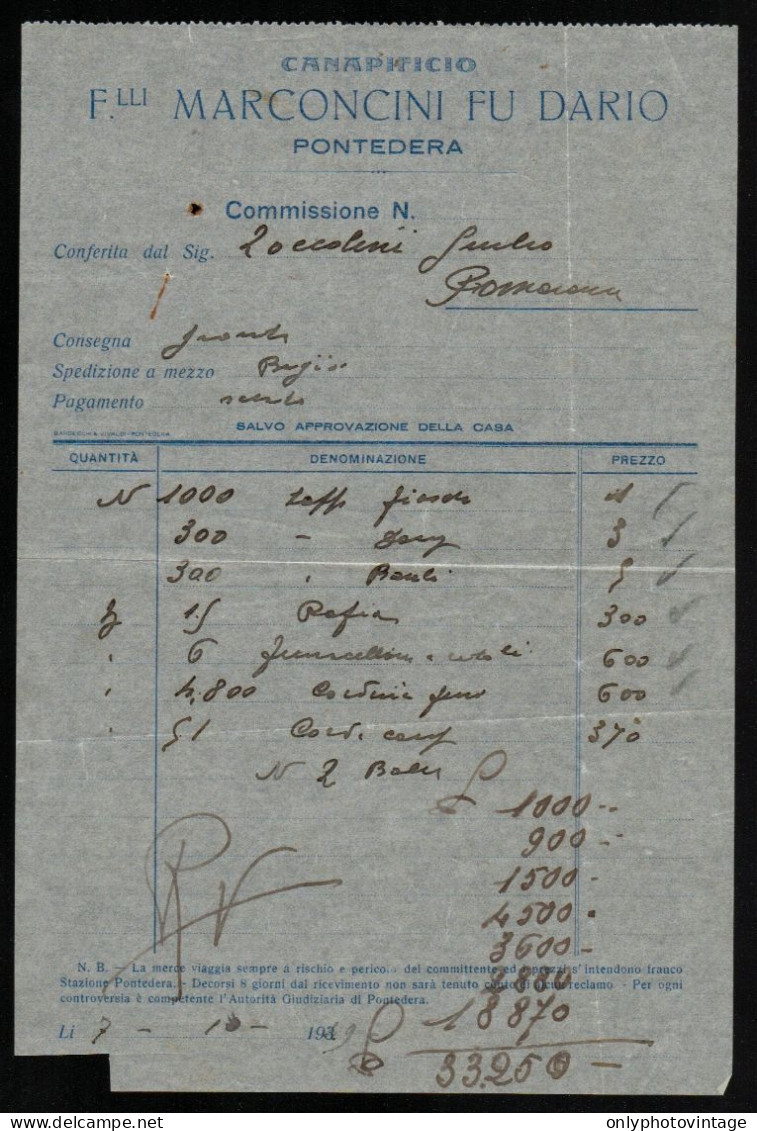 CANAPIFICIO
F.LLI MARCONCINI FU DARIO
PONTEDERA
Commissione N.
Conferita dal Sig. Zoccolini Giulio
Consegna pronta
Spedizione a mezzo
Pagamento
SALVO APPROVAZIONE DELLA CASA
QUANTITÀ DENOMINAZIONE PREZZO
N 1000 1
300 - 3
300 " 5
15 Rafia 300
" 6 600
" 4,800 600
" 51 Corde 370
N 2 Balle
£ 1000 --
900 --
1500 -
4500 -
3600 -
2880
18870
N. B. - La merce viaggia sempre a rischio e pericolo del committente ed i prezzi s'intendono franco
Stazione Pontedera. - Decorsi 8 giorni dal ricevimento non sarà tenuto conto di alcun reclamo - Per ogni
controversia è competente l'Autorità Giudiziaria di Pontedera.
Li 7 - 10 - 1949
£ 33.250 -
onlyphotovintage